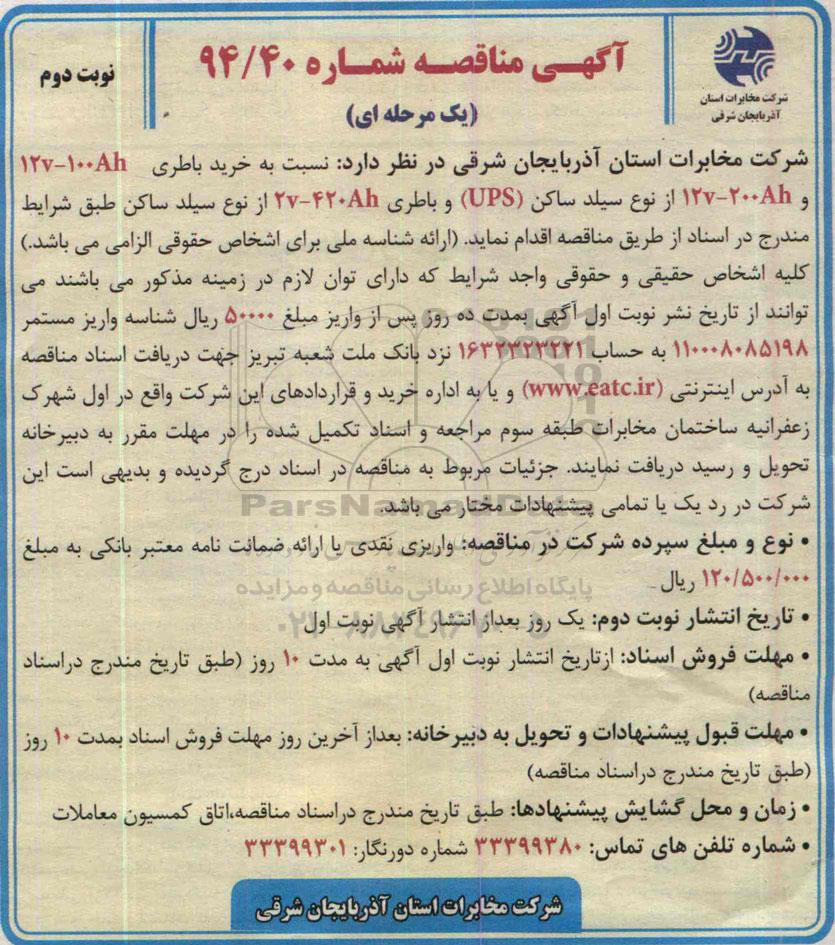 شرکت مخابرات استان
آذربایجان شرقی
آگهی مناقصه شماره ۹۴/۴۰
(یک مرحله ای)
نوبت دوم
شرکت مخابرات استان آذربایجان شرقی در نظر دارد: نسبت به خرید باطری ۱۲v-۱۰۰Ah
و ۱۲v-۲۰۰Ah از نوع سیلد ساکن (UPS) و باطری ۲v-۴۲۰Ah از نوع سیلد ساکن طبق شرایط
مندرج در اسناد از طریق مناقصه اقدام نماید. (ارائه شناسه ملی برای اشخاص حقوقی الزامی می باشد.)
کلیه اشخاص حقیقی و حقوقی واجد شرایط که دارای توان لازم در زمینه مذکور می باشند می
توانند از تاریخ نشر نوبت اول آگهی بمدت ده روز پس از واریز مبلغ ۵۰۰۰۰ ریال شناسه واریز مستمر
۱۱۰۰۰۸۰۸۵۱۹۸ به حساب ۱۶۳۲۳۲۳۲۲۱ نزد بانک ملت شعبه تبریز جهت دریافت اسناد مناقصه
به آدرس اینترنتی (www.eatc.ir) و یا به اداره خرید و قراردادهای این شرکت واقع در اول شهرک
زعفرانیه ساختمان مخابرات طبقه سوم مراجعه و اسناد تکمیل شده را در مهلت مقرر به دبیرخانه
تحویل و رسید دریافت نمایند. جزئیات مربوط به مناقصه در اسناد درج گردیده و بدیهی است این
شرکت در رد یک یا تمامی پیشنهادات مختار می باشد.
ParsNamadData
• نوع و مبلغ سپرده شرکت در مناقصه: واریزی نقدی یا ارائه ضمانت نامه معتبر بانکی به مبلغ
۱۲۰/۵۰۰/۰۰۰ ریال
پایگاه اطلاع رسانی مناقصه و مزایده
• تاریخ انتشار نوبت دوم: یک روز بعداز انتشار آگهی نوبت اول
• مهلت فروش اسناد: ازتاریخ انتشار نوبت اول آگهی به مدت ۱۰ روز (طبق تاریخ مندرج دراسناد
مناقصه)
• مهلت قبول پیشنهادات و تحویل به دبیرخانه: بعداز آخرین روز مهلت فروش اسناد بمدت ۱۰ روز
(طبق تاریخ مندرج دراسناد مناقصه)
• زمان و محل گشایش پیشنهادها: طبق تاریخ مندرج دراسناد مناقصه،اتاق کمسیون معاملات
• شماره تلفن های تماس: ۳۳۳۹۹۳۸۰ شماره دورنگار: ۳۳۳۹۹۳۰۱
شرکت مخابرات استان آذربایجان شرقی